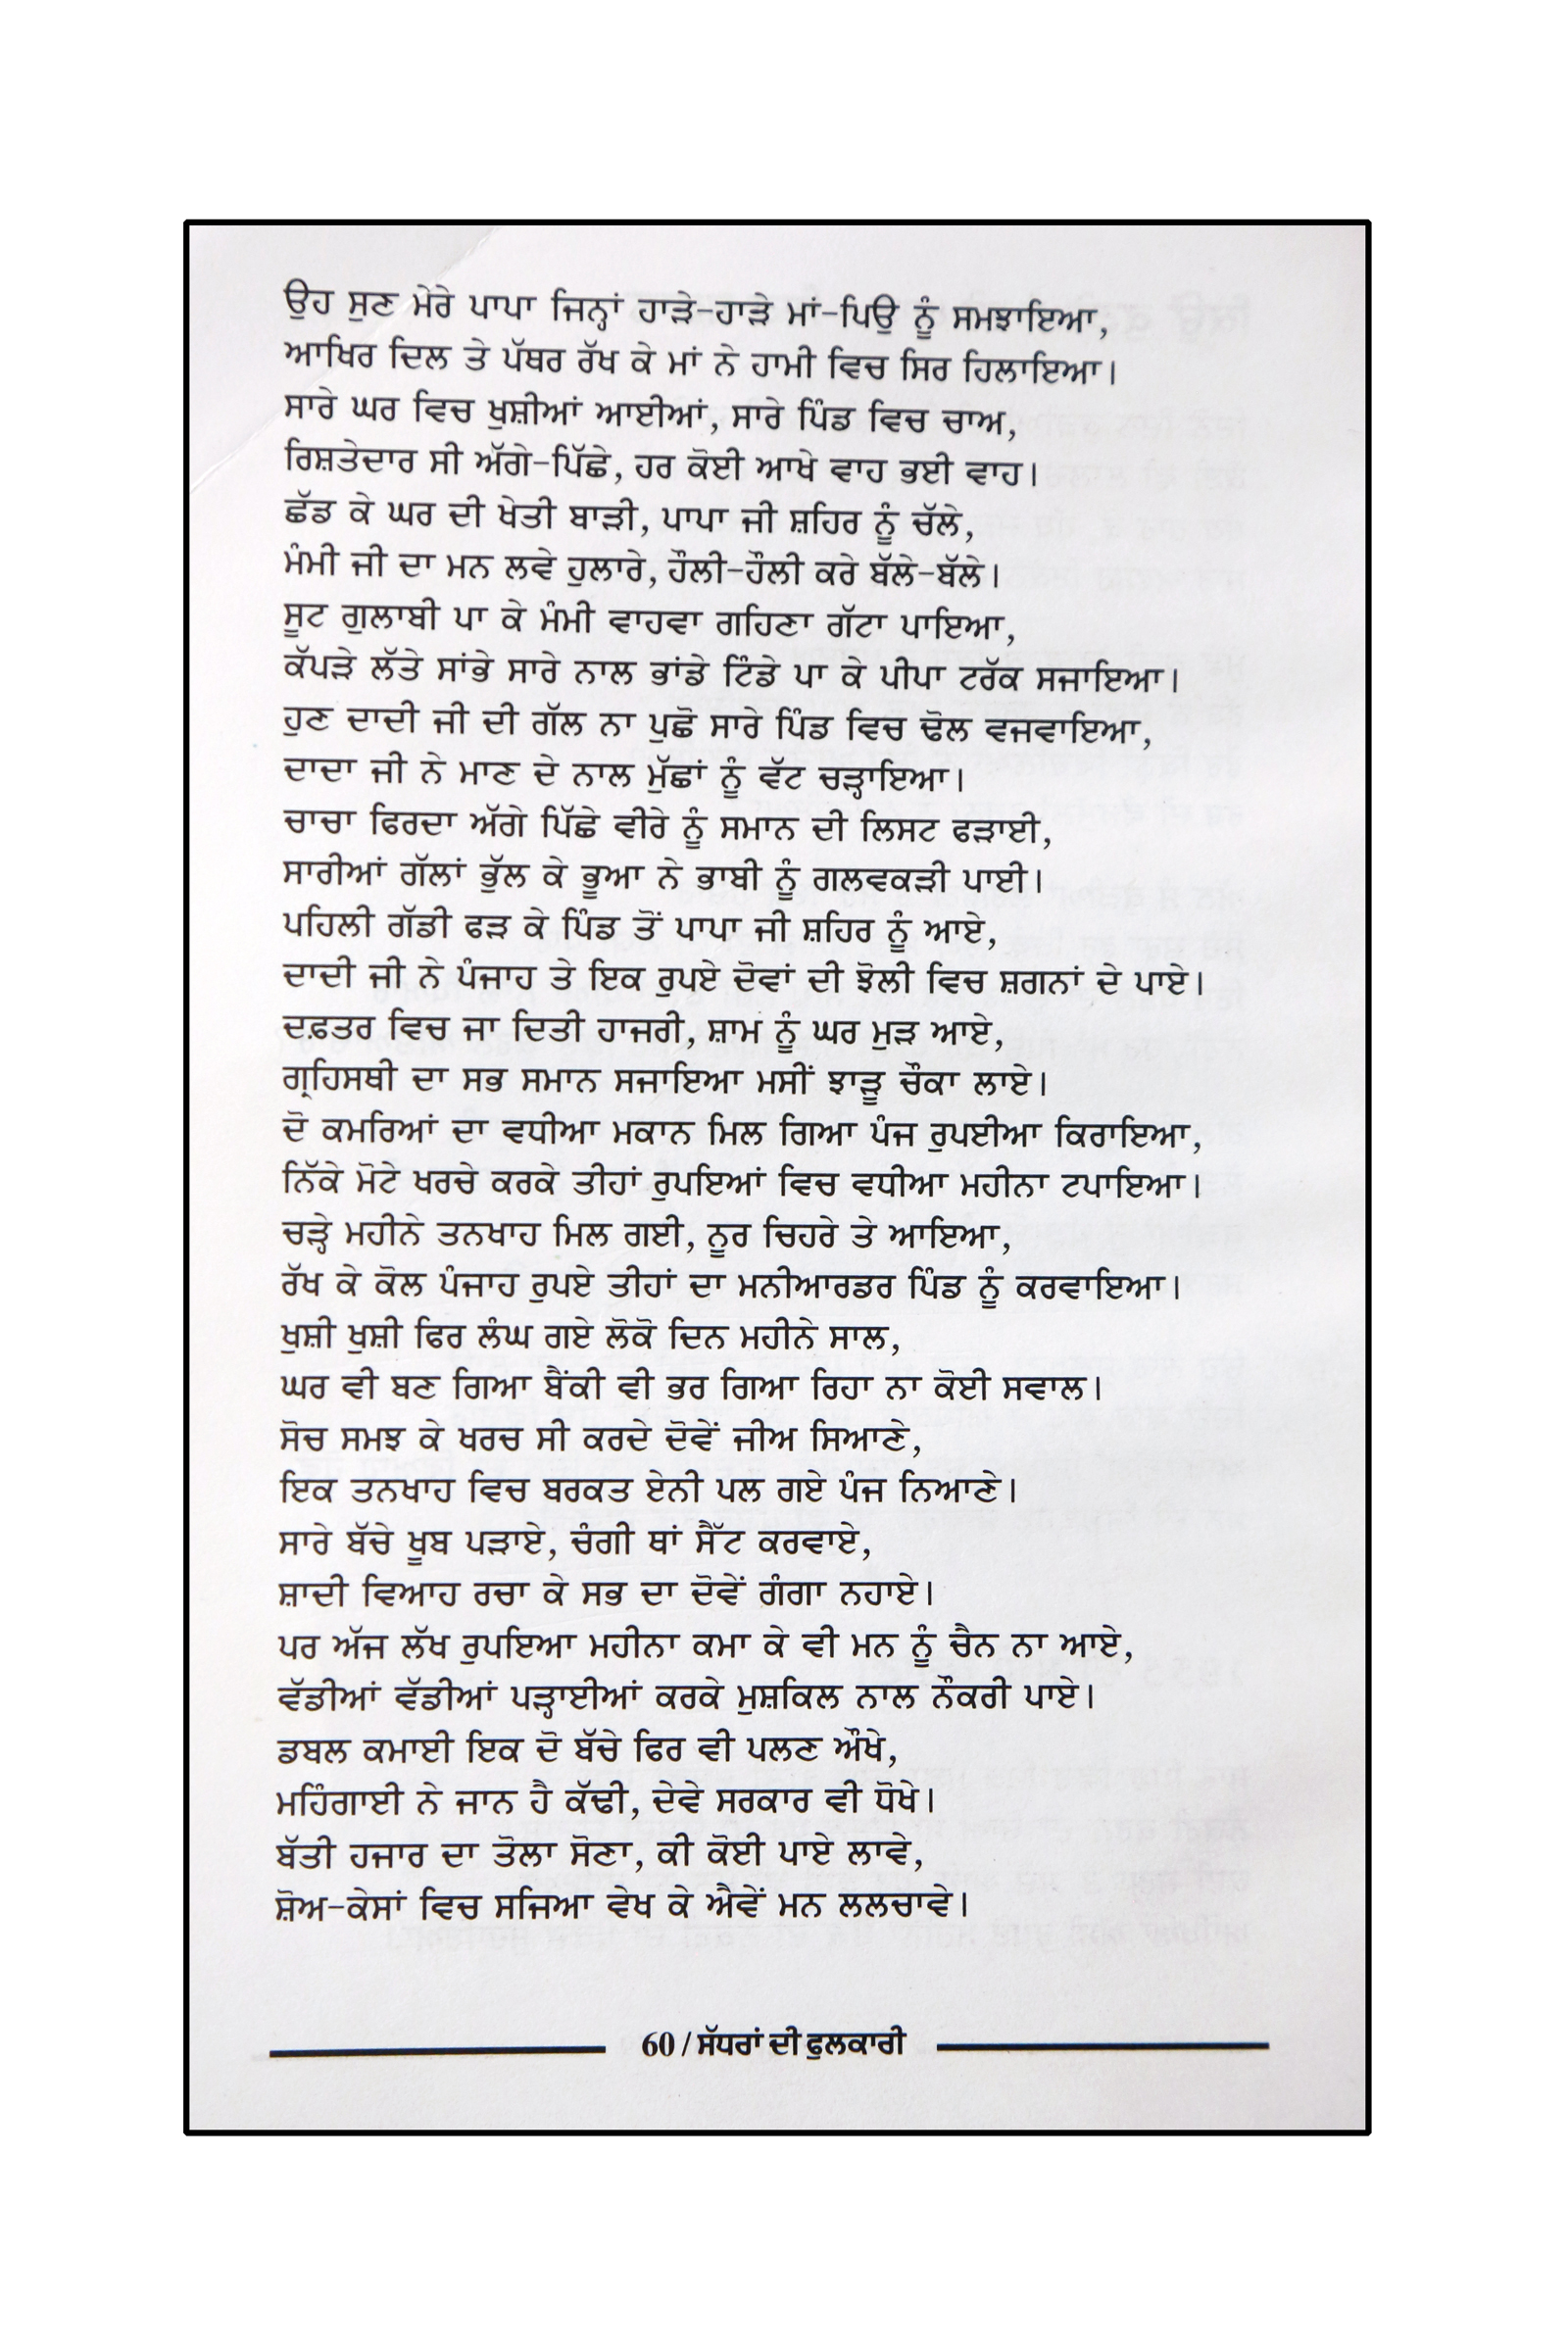 ਉਹ ਸੁਣ ਮੇਰੇ ਪਾਪਾ ਜਿਨ੍ਹਾਂ ਹਾੜੇ-ਹਾੜੇ ਮਾਂ-ਪਿਉ ਨੂੰ ਸਮਝਾਇਆ,
ਆਖਿਰ ਦਿਲ ਤੇ ਪੱਥਰ ਰੱਖ ਕੇ ਮਾਂ ਨੇ ਹਾਮੀ ਵਿਚ ਸਿਰ ਹਿਲਾਇਆ।
ਸਾਰੇ ਘਰ ਵਿਚ ਖੁਸ਼ੀਆਂ ਆਈਆਂ, ਸਾਰੇ ਪਿੰਡ ਵਿਚ ਚਾਅ,
ਰਿਸ਼ਤੇਦਾਰ ਸੀ ਅੱਗੇ-ਪਿੱਛੇ, ਹਰ ਕੋਈ ਆਖੇ ਵਾਹ ਭਈ ਵਾਹ।
ਛੱਡ ਕੇ ਘਰ ਦੀ ਖੇਤੀ ਬਾੜੀ, ਪਾਪਾ ਜੀ ਸ਼ਹਿਰ ਨੂੰ ਚੱਲੇ,
ਮੰਮੀ ਜੀ ਦਾ ਮਨ ਲਵੇ ਹੁਲਾਰੇ, ਹੌਲੀ-ਹੌਲੀ ਕਰੇ ਬੱਲੇ-ਬੱਲੇ।
ਸੂਟ ਗੁਲਾਬੀ ਪਾ ਕੇ ਮੰਮੀ ਵਾਹਵਾ ਗਹਿਣਾ ਗੱਟਾ ਪਾਇਆ,
ਕੱਪੜੇ ਲੱਤੇ ਸਾਂਭੇ ਸਾਰੇ ਨਾਲ ਭਾਂਡੇ ਟਿੰਡੇ ਪਾ ਕੇ ਪੀਪਾ ਟਰੱਕ ਸਜਾਇਆ।
ਹੁਣ ਦਾਦੀ ਜੀ ਦੀ ਗੱਲ ਨਾ ਪੁਛੋ ਸਾਰੇ ਪਿੰਡ ਵਿਚ ਢੋਲ ਵਜਵਾਇਆ,
ਦਾਦਾ ਜੀ ਨੇ ਮਾਣ ਦੇ ਨਾਲ ਮੁੱਛਾਂ ਨੂੰ ਵੱਟ ਚੜ੍ਹਾਇਆ।
ਚਾਚਾ ਫਿਰਦਾ ਅੱਗੇ ਪਿੱਛੇ ਵੀਰੇ ਨੂੰ ਸਮਾਨ ਦੀ ਲਿਸਟ ਫੜਾਈ,
ਸਾਰੀਆਂ ਗੱਲਾਂ ਭੁੱਲ ਕੇ ਭੂਆ ਨੇ ਭਾਬੀ ਨੂੰ ਗਲਵਕੜੀ ਪਾਈ।
ਪਹਿਲੀ ਗੱਡੀ ਫੜ ਕੇ ਪਿੰਡ ਤੋਂ ਪਾਪਾ ਜੀ ਸ਼ਹਿਰ ਨੂੰ ਆਏ,
ਦਾਦੀ ਜੀ ਨੇ ਪੰਜਾਹ ਤੇ ਇਕ ਰੁਪਏ ਦੋਵਾਂ ਦੀ ਝੋਲੀ ਵਿਚ ਸ਼ਗਨਾਂ ਦੇ ਪਾਏ।
ਦਫ਼ਤਰ ਵਿਚ ਜਾ ਦਿਤੀ ਹਾਜਰੀ, ਸ਼ਾਮ ਨੂੰ ਘਰ ਮੁੜ ਆਏ,
ਗ੍ਰਹਿਸਥੀ ਦਾ ਸਭ ਸਮਾਨ ਸਜਾਇਆ ਮਸੀਂ ਝਾੜੂ ਚੌਕਾ ਲਾਏ।
ਦੋ ਕਮਰਿਆਂ ਦਾ ਵਧੀਆ ਮਕਾਨ ਮਿਲ ਗਿਆ ਪੰਜ ਰੁਪਈਆ ਕਿਰਾਇਆ,
ਨਿੱਕੇ ਮੋਟੇ ਖਰਚੇ ਕਰਕੇ ਤੀਹਾਂ ਰੁਪਇਆਂ ਵਿਚ ਵਧੀਆ ਮਹੀਨਾ ਟਪਾਇਆ।
ਚੜ੍ਹੇ ਮਹੀਨੇ ਤਨਖਾਹ ਮਿਲ ਗਈ, ਨੂਰ ਚਿਹਰੇ ਤੇ ਆਇਆ,
ਰੱਖ ਕੇ ਕੋਲ ਪੰਜਾਹ ਰੁਪਏ ਤੀਹਾਂ ਦਾ ਮਨੀਆਰਡਰ ਪਿੰਡ ਨੂੰ ਕਰਵਾਇਆ।
ਖੁਸ਼ੀ ਖੁਸ਼ੀ ਫਿਰ ਲੰਘ ਗਏ ਲੋਕੋ ਦਿਨ ਮਹੀਨੇ ਸਾਲ,
ਘਰ ਵੀ ਬਣ ਗਿਆ ਬੈਂਕੀ ਵੀ ਭਰ ਗਿਆ ਰਿਹਾ ਨਾ ਕੋਈ ਸਵਾਲ।
ਸੋਚ ਸਮਝ ਕੇ ਖਰਚ ਸੀ ਕਰਦੇ ਦੋਵੇਂ ਜੀਅ ਸਿਆਣੇ,
ਇਕ ਤਨਖਾਹ ਵਿਚ ਬਰਕਤ ਏਨੀ ਪਲ ਗਏ ਪੰਜ ਨਿਆਣੇ।
ਸਾਰੇ ਬੱਚੇ ਖੂਬ ਪੜਾਏ, ਚੰਗੀ ਥਾਂ ਸੈੱਟ ਕਰਵਾਏ,
ਸ਼ਾਦੀ ਵਿਆਹ ਰਚਾ ਕੇ ਸਭ ਦਾ ਦੋਵੇਂ ਗੰਗਾ ਨਹਾਏ।
ਪਰ ਅੱਜ ਲੱਖ ਰੁਪਇਆ ਮਹੀਨਾ ਕਮਾ ਕੇ ਵੀ ਮਨ ਨੂੰ ਚੈਨ ਨਾ ਆਏ,
ਵੱਡੀਆਂ ਵੱਡੀਆਂ ਪੜ੍ਹਾਈਆਂ ਕਰਕੇ ਮੁਸ਼ਕਿਲ ਨਾਲ ਨੌਕਰੀ ਪਾਏ।
ਡਬਲ ਕਮਾਈ ਇਕ ਦੋ ਬੱਚੇ ਫਿਰ ਵੀ ਪਲਣ ਔਖੇ,
ਮਹਿੰਗਾਈ ਨੇ ਜਾਨ ਹੈ ਕੱਢੀ, ਦੇਵੇ ਸਰਕਾਰ ਵੀ ਧੋਖੇ।
ਬੱਤੀ ਹਜਾਰ ਦਾ ਤੋਲਾ ਸੋਨਾ, ਕੀ ਕੋਈ ਪਾਏ ਲਾਵੇ,
ਸ਼ੋਅ-ਕੇਸਾਂ ਵਿਚ ਸਜਿਆ ਵੇਖ ਕੇ ਐਵੇਂ ਮਨ ਲਲਚਾਵੇ।
60 / ਸੱਧਰਾਂ ਦੀ ਫੁਲਕਾਰੀ